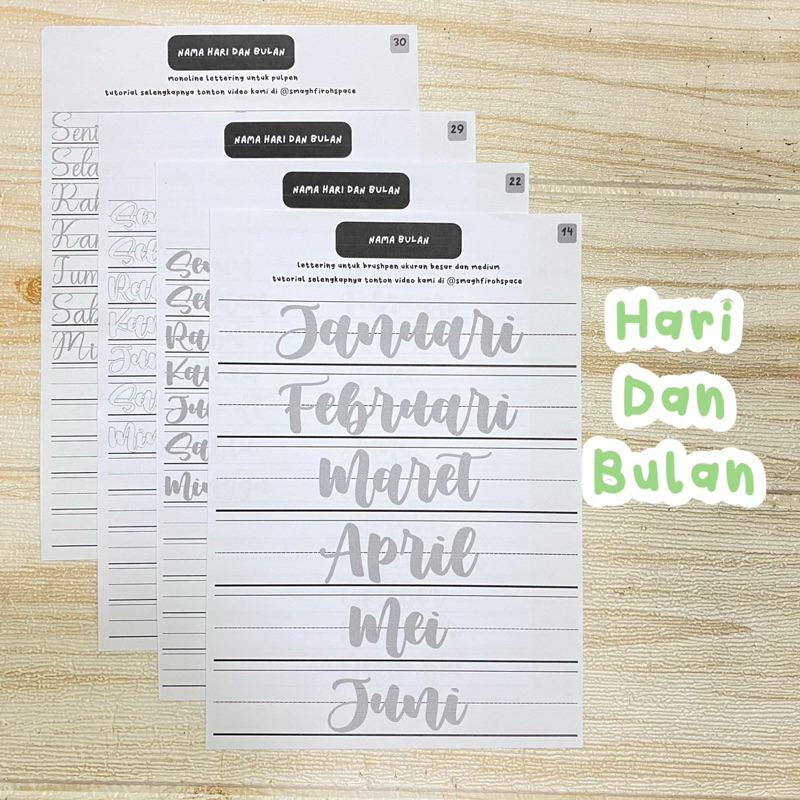 NAMA HARI DAN BULAN
30
monoline lettering untuk pulpen
tutorial selengkapnya tonton video kami di @smaghfirohspace
Sen
Sela
Ra
Kam
Jum
Sab
Mi
NAMA HARI DAN BULAN
29
Se
Sel
Ra
Ka
Ju
Sa
Min
NAMA HARI DAN BULAN
22
Se
Se
Ra
Ka
Ju
Sa
Min
NAMA BULAN
14
lettering untuk brushpen ukuran besar dan medium
tutorial selengkapnya tonton video kami di @smaghfirohspace
Januari
Februari
Maret
April
Mei
Juni
Hari
Dan
Bulan